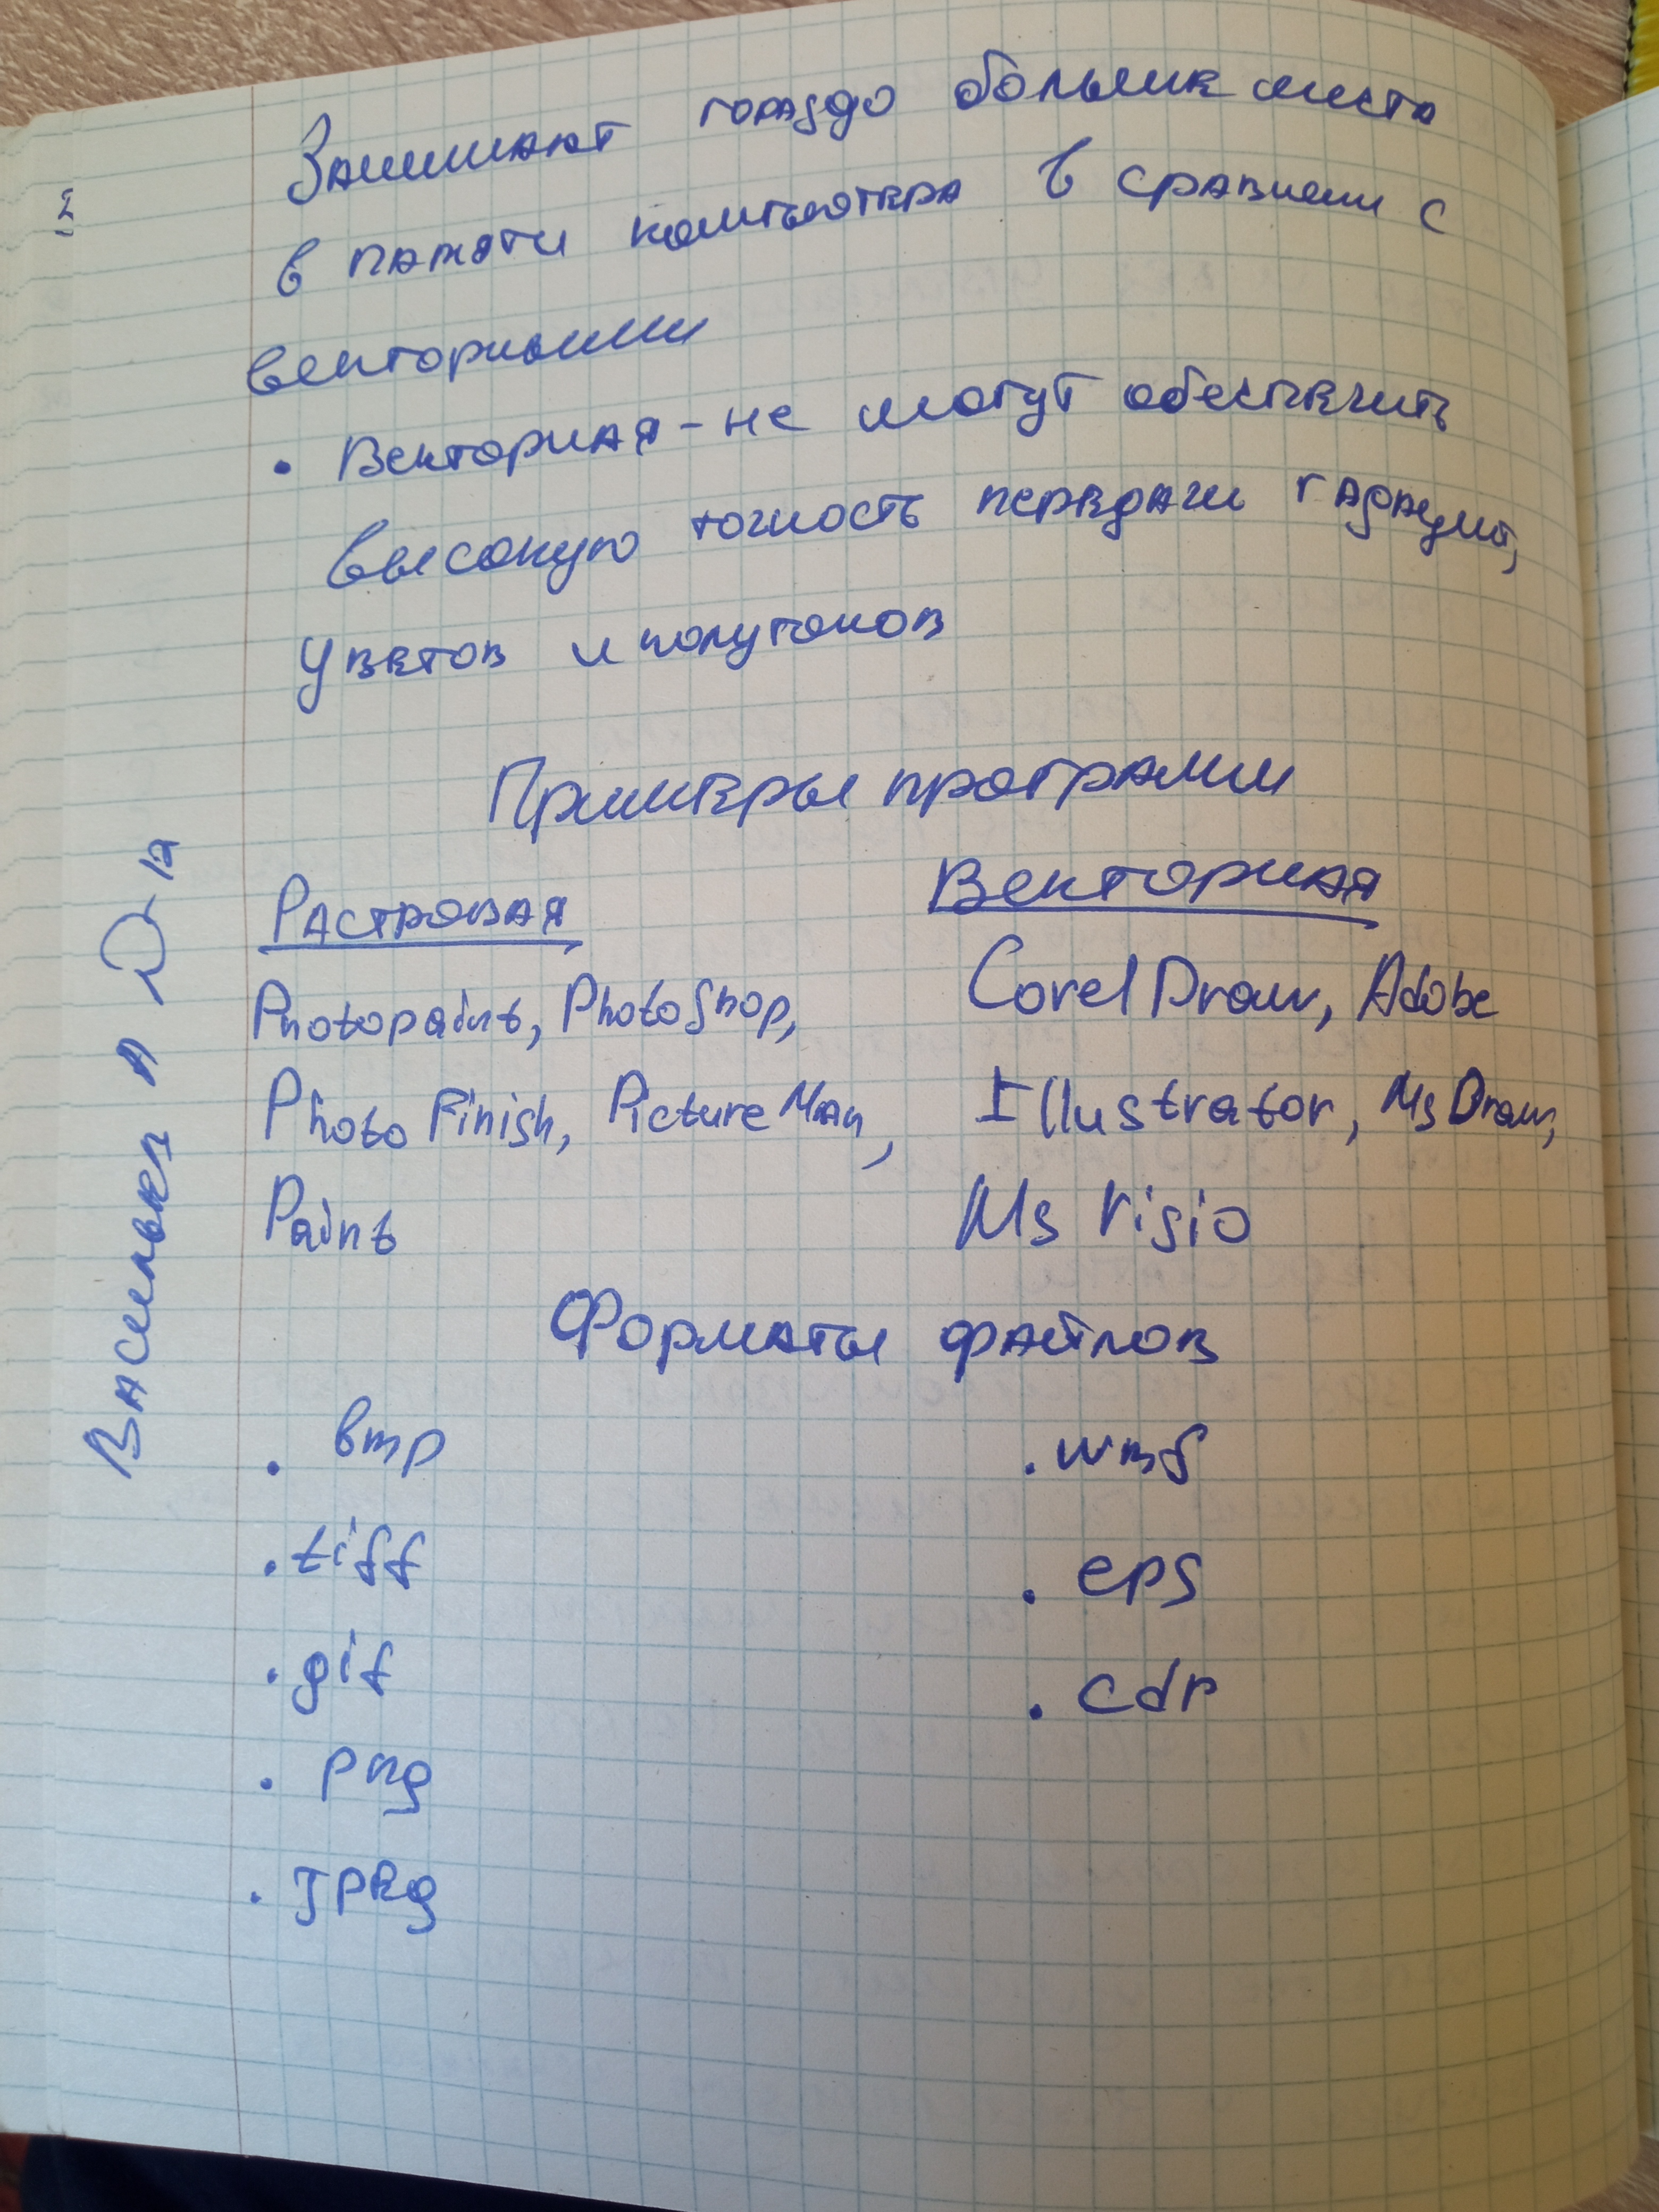 Занимают гораздо больше места
в памяти компьютера в сравнени с
векторными
• Векторная - не могут обеспечить
высокую точность передачи
цветов и полутонов
Примеры программ
Растровая Векторная
Photopaint, PhotoShop, Corel Draw, Adobe
Photo Finish, Picture Man, Illustrator, Ms Draw,
Paint Ms Visio
Форматы файлов
. bmp . wmf
. tiff . eps
. gif . cdr
. png
. Jpeg
Васильев А